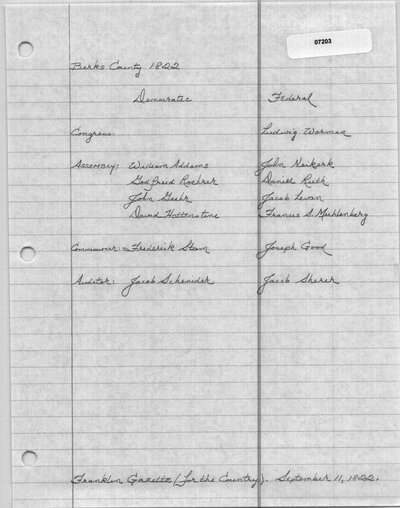 07203
Berks County 1822
Democratic Federal
Congress: Ludwig Worman
Assembly: William Addams John Neikerk
Godfried Roehrer Daniel Rieth
John Gehr Jacob Levan
David Hottenstine Francis S. Muhlenberg
Commissioner: Frederick Stam Joseph Good
Auditor: Jacob Schneider Jacob Sherer
Franklin Gazette (for the Country). September 11, 1822.